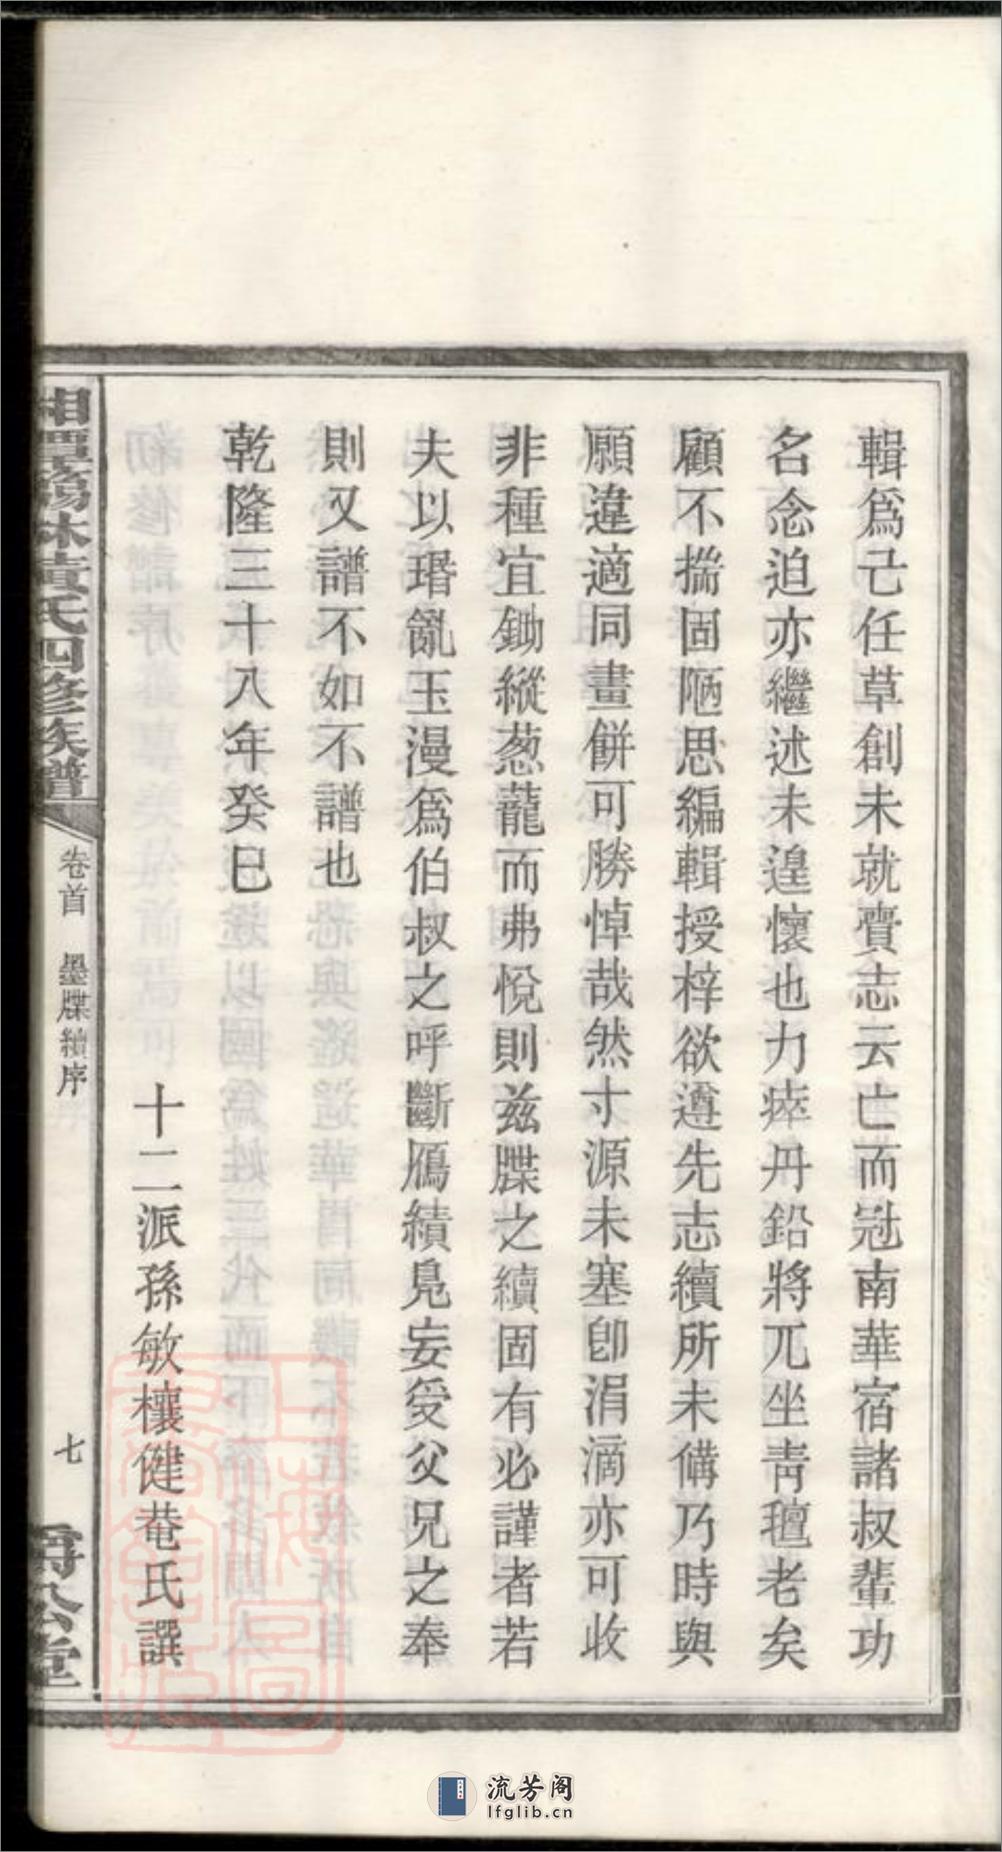 輯爲己任草創未就賫志云亡而冠南華宿諸叔輩功
名念迫亦繼述未遑懷也力瘁丹鉛將兀坐靑氊老矣
顧不揣固陋思編輯授梓欲遵先志續所未備乃時與
願違適同畫餅可勝悼哉然寸源未塞卽涓滴亦可收
非種宜鋤縱葱蘢而弗悅則兹牒之續固有必謹者若
夫以瑉亂玉漫爲伯叔之呼斷鴈續鳧妄受父兄之奉
則又譜不如不譜也
乾隆三十八年癸巳
十二派孫敏欀健菴氏譔
湘潭錫林黃氏四修族譜
卷首 墨牒續序
七
公堂
流芳阁
lfglib.cn